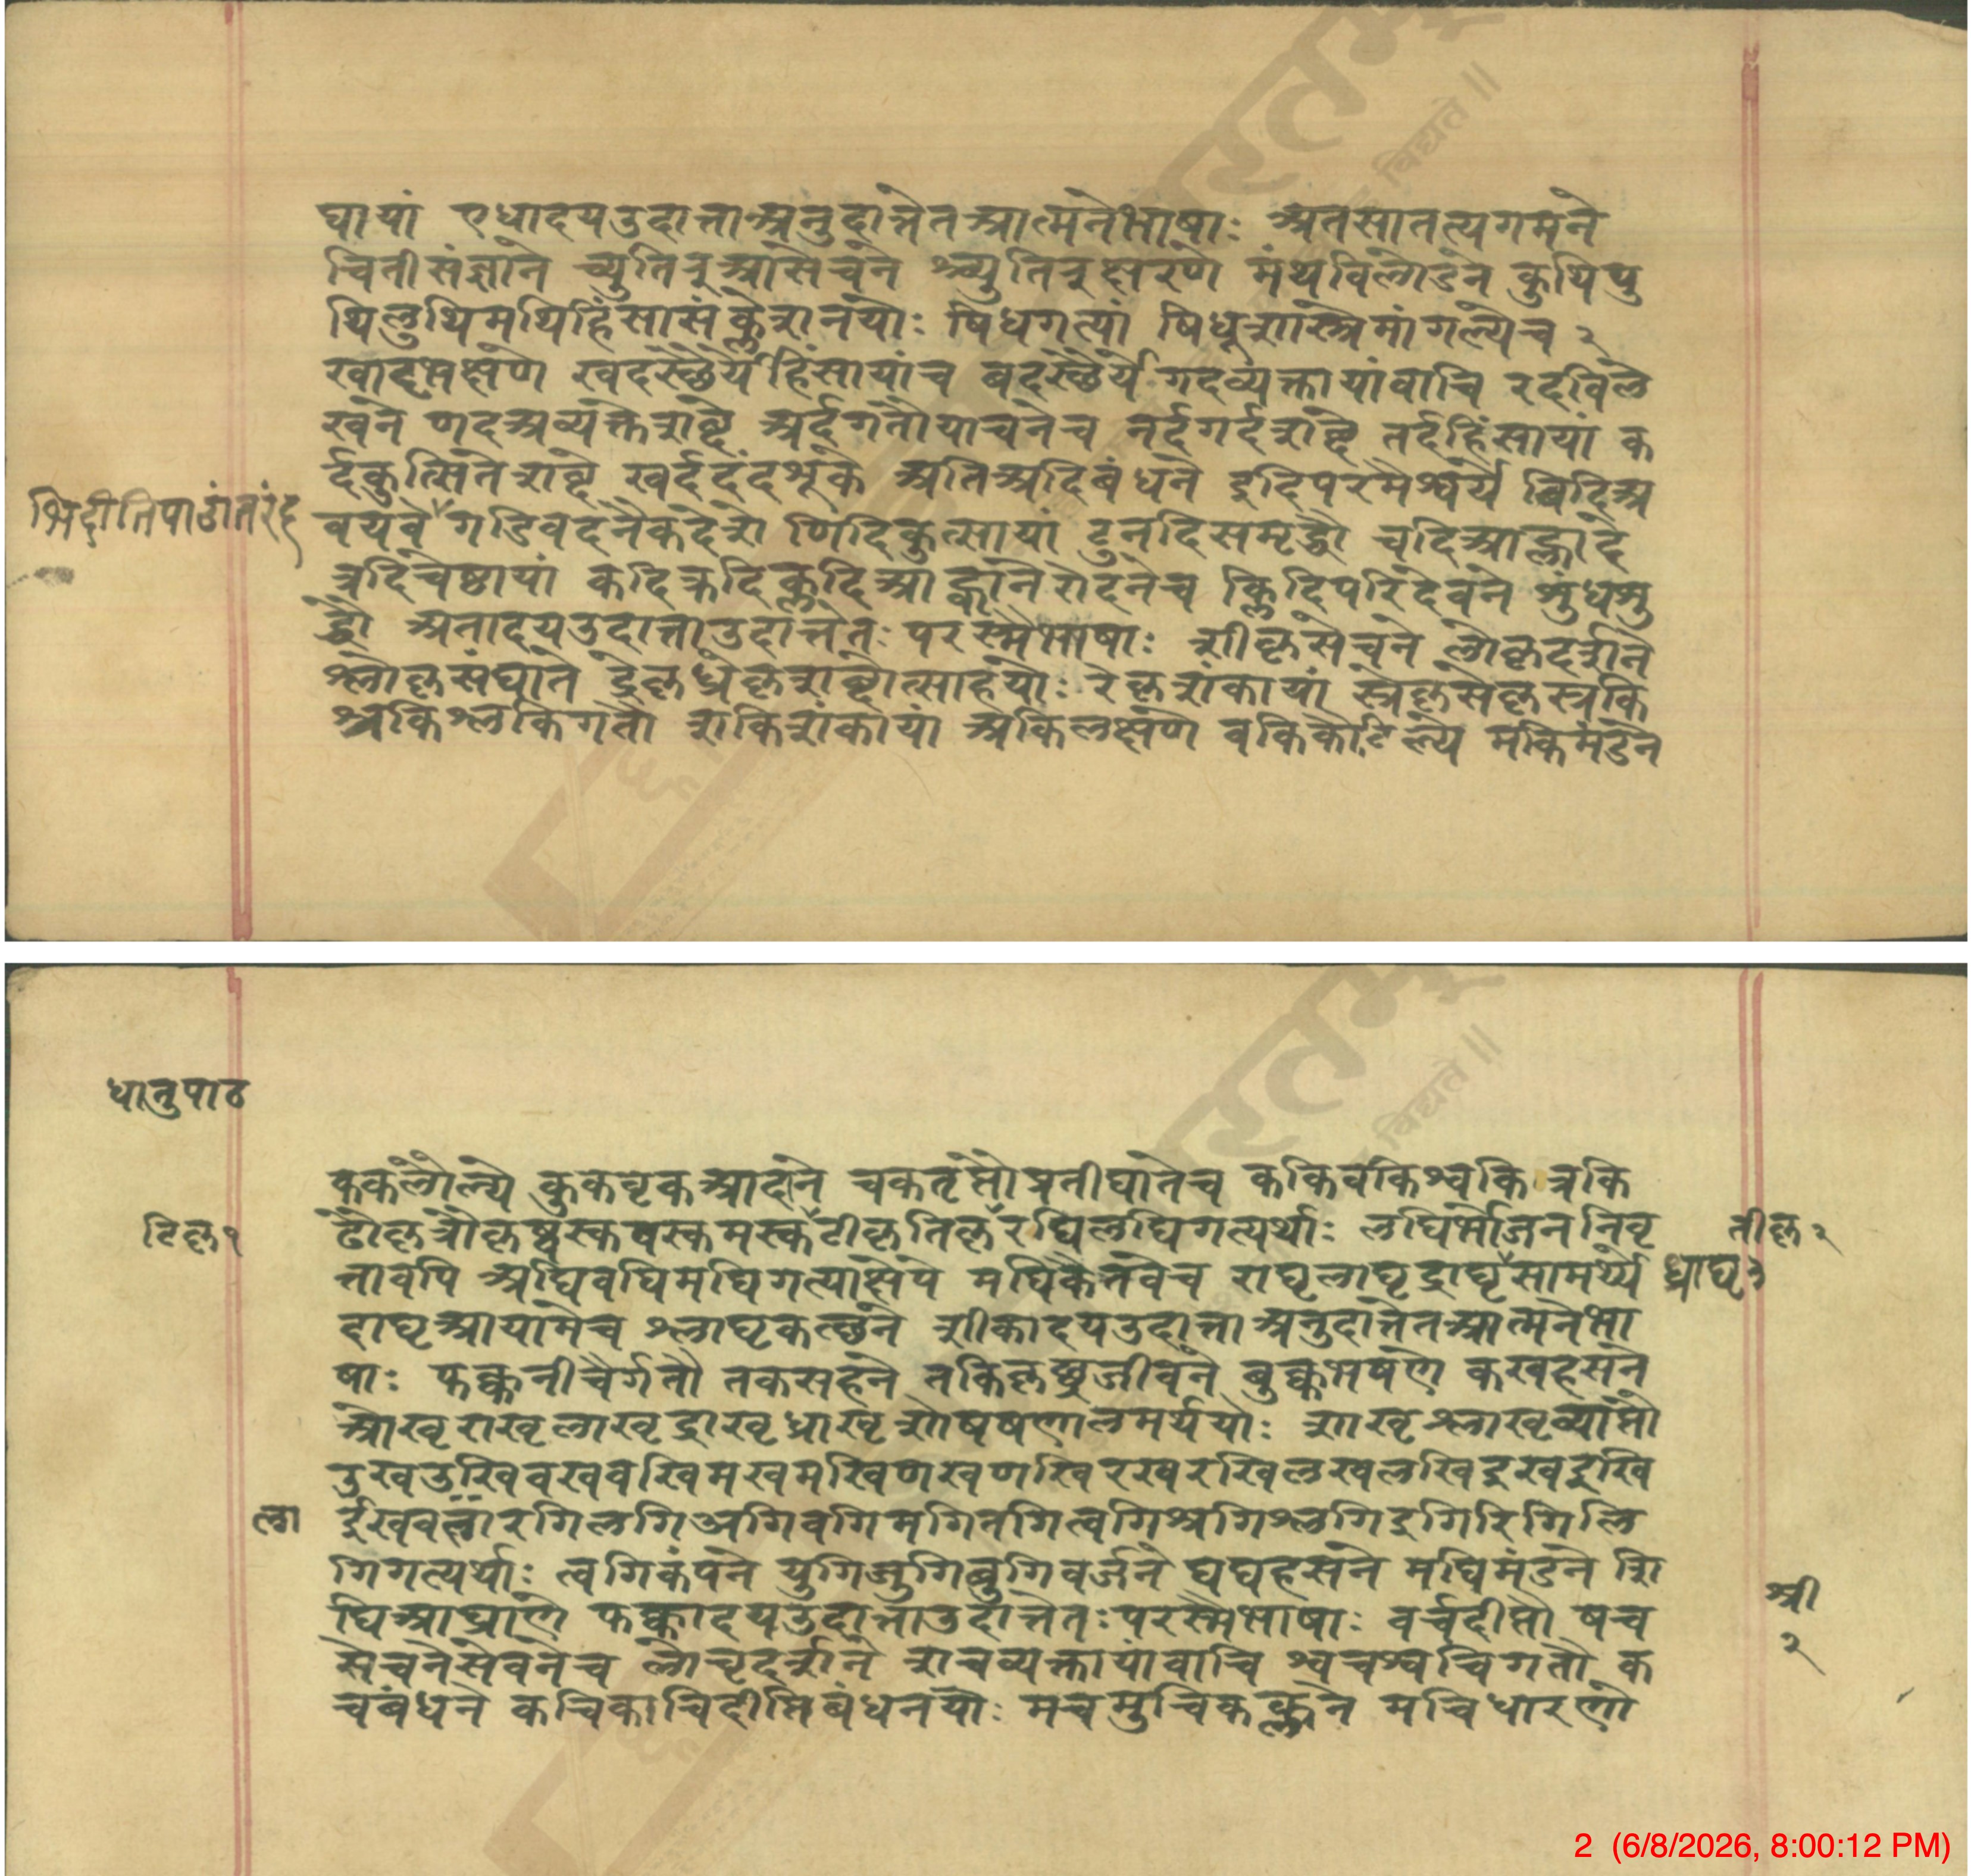 घायां एधादयउदात्ताअनुदात्तेतआत्मनेभाषाः अतसातत्यगमने
चितीसंज्ञाने च्युतिर्‌आसेचने श्च्युतिर्‌क्षरणे मंथविलोडने कुथिपु
थिलुथिमथिहिंसासंक्लेशनयोः षिधगत्यां षिधूशास्त्रेमांगल्येच २
खादृभक्षणे खदस्थैर्येहिंसायांच बदस्थैर्ये गदव्यक्तायांवाचि रदविले
खने णदअव्यक्तेशब्दे अर्दगतौयाचनेच नर्दगर्दशब्दे तर्दहिंसायां क
र्दकुत्सितेशब्दे खर्ददंदशूके अतिअदिबंधने इदिपरमैश्वर्ये बिदिअ
भिदीतिपाठांतरंह
वयवे गडिवदनैकदेशे णिदिकुत्सायां टुनदिसमृद्धौ चदिआह्लादे
त्रदिचेष्ठायां कदिक्रदिक्लदिआह्वानेरोदनेच क्लिदिपरिदेवने शुंधशु
द्धौ अतादयउदात्ताउदात्तेतः परस्मैभाषाः शीकृसेचने लोकृदर्शने
श्लोकृसंघाते द्रेकृध्रेकृशब्दोत्साहयोः रेकृशंकायां स्रेकृसेकृस्रकि
श्रकिश्लकिगतौ शकिशंकायां अकिलक्षणे वकिकौटिल्ये मकिमंडने
धातुपाठ
ककलौल्ये कुकवृकआदाने चकतृप्तौप्रतीघातेच ककिवकिश्वकि त्रकि
ढौकृत्रौकृष्वस्कवस्कमस्कटीकृतिकृरघिलघिगत्यर्थाः लघिर्भोजननिवृ
टिकृ१
तीकृ२
त्तावपि अघिवघिमघिगत्याक्षेपे मघिकैतवेच राघृलाघृद्राघृसामर्थ्ये
ध्राघृ३
द्राघृआयामेच श्लाघृकत्छने शीकादयउदात्ताअनुदात्तेतआत्मनेभा
षाः फक्कनीचैर्गतौ तकसहने तकिकृछ्रजीवने बुक्कभषणे कखहसने
ओखृराखृलाखृद्राखृध्राखृशोषणालमर्थयोः शाखृश्लाखृव्याप्तौ
उखउखिवखवखिमखमखिणखणखिरखरखिलखलखिइखइखि
ला
ईखवल्गरगिलगिअगिवगिमगितगित्वगिश्रगिश्लगिइगिरिगिलि
गिगत्यर्थाः त्वगिकंपने युगिजुगिबुगिवर्जने घघहसने मघिमंडने शि
घिआघ्राणे फक्कादयउदात्ताउदात्तेतःपरस्मैभाषाः वर्चदीप्तौ षच
श्री
२
सेचनेसेवनेच लोचृदर्शने शचव्यक्तायांवाचि श्वचश्वचिगतौ क
चबंधने कचिकाचिदीप्तिबंधनयोः मचमुचिकल्कने मचिधारणो
2 (6/8/2026, 8:00:12 PM)